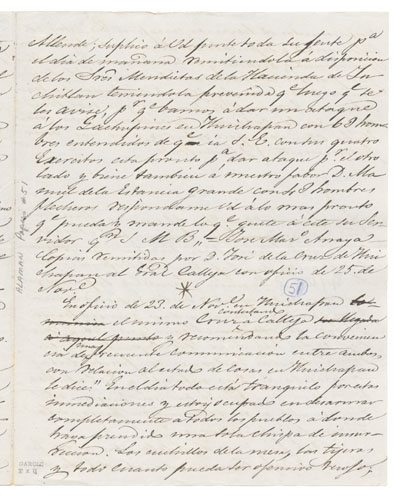 Allende; suplico á Ud junte toda su gente pa
el dia de mañana remitiendola á disposicion
de los Sres Mendietas de la Hacienda de
chitlan teniendola prevenida qe luego qe te
les avise, pr qe bamos á dar un ataque
á los Gachupines en Huichapan con 6 hombres
entendidos de que la S. E. con sus quatro
Exercitos esta pronto pa dar ataque pr el otro
lado y biene tambien a nuestro fabor D. Manuel
de la Estancia grande con hombres
flecheros respondame Ud á lo mas pronto
qe pueda y mande lo qe guste á este su Ser-
vidor qe S M B,, Jose Mar Anaya
Copias remitidas por D. José de la Cruz de Hui
chapan al Gral Calleja con oficio de 25 de
Nove
*
51
En oficio de 23 de Nove en Huichapan
el mismo Cruz contestando a Calleja
y recomendando la convenien
cia de frecuente comunicacion entre ambos,
con relacion al estado de cosas en Huichapan
le dice: " En el dia todo esta tranquilo por estas
inmediaciones y estoy ocupado en desarmar
completamente a todos los pueblos a donde
haya prendido una sola chispa de insur-
reccion. Los cuchillos de la mesa, las tijeras
y todo cuanto pueda ser ofensivo recojo,
ALAMAN Papeles #51
GARCIA